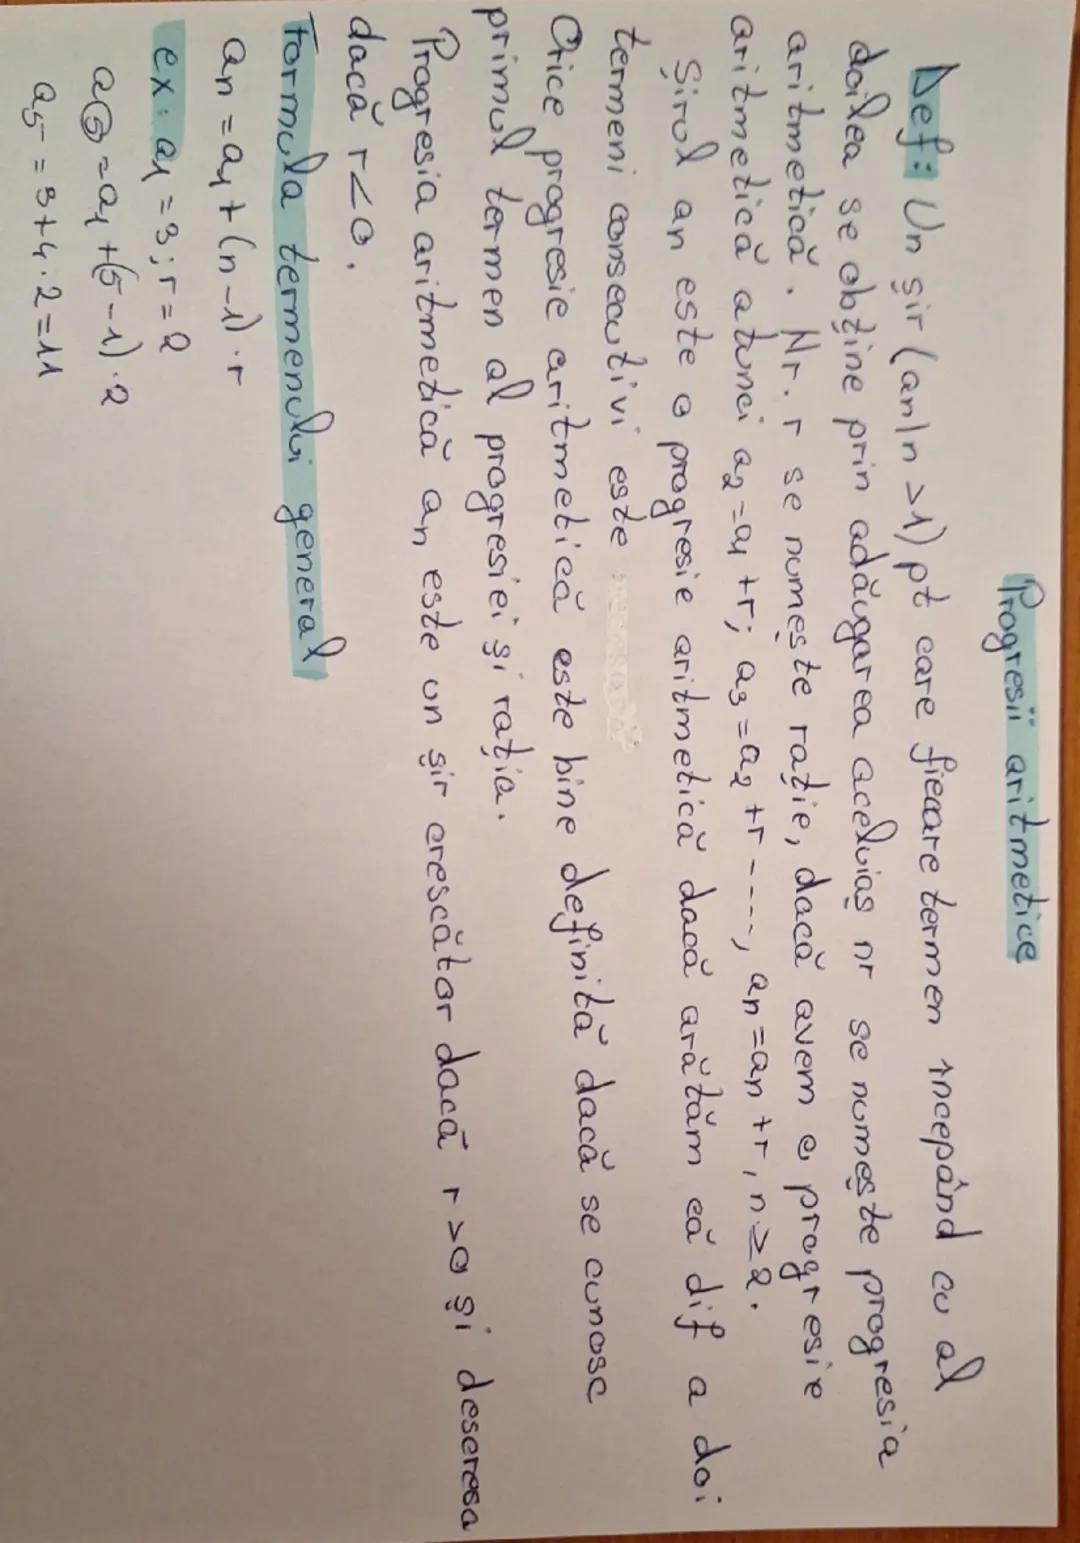 Progresii aritmetice
Def: Un șir (an|n>1) pt care fiecare termen începând cu al
doilea se obține prin adăugarea aceluiaș nr se numește progresia
aritmetică. Nr. r se numește rație, dacă avem o progresie
aritmetică atunci a₂=a₁+r; a₃=a₂+r----, an=an+r, n≥2.
Șirul an este o progresie aritmetică dacă arătăm că dif a doi
termeni consecutivi este
Orice progresie aritmetică este bine definită dacă se cunosc
primul termen al progresiei și rația.
Progresia aritmetică an este un șir crescător dacă r>0 și descresa
dacă r<0.
Formula termenului general
an = a₁ + (n-1)·r
ex: a₁=3; r=2
a₅=a₁+(5-1)·2
a₅=3+4·2=11